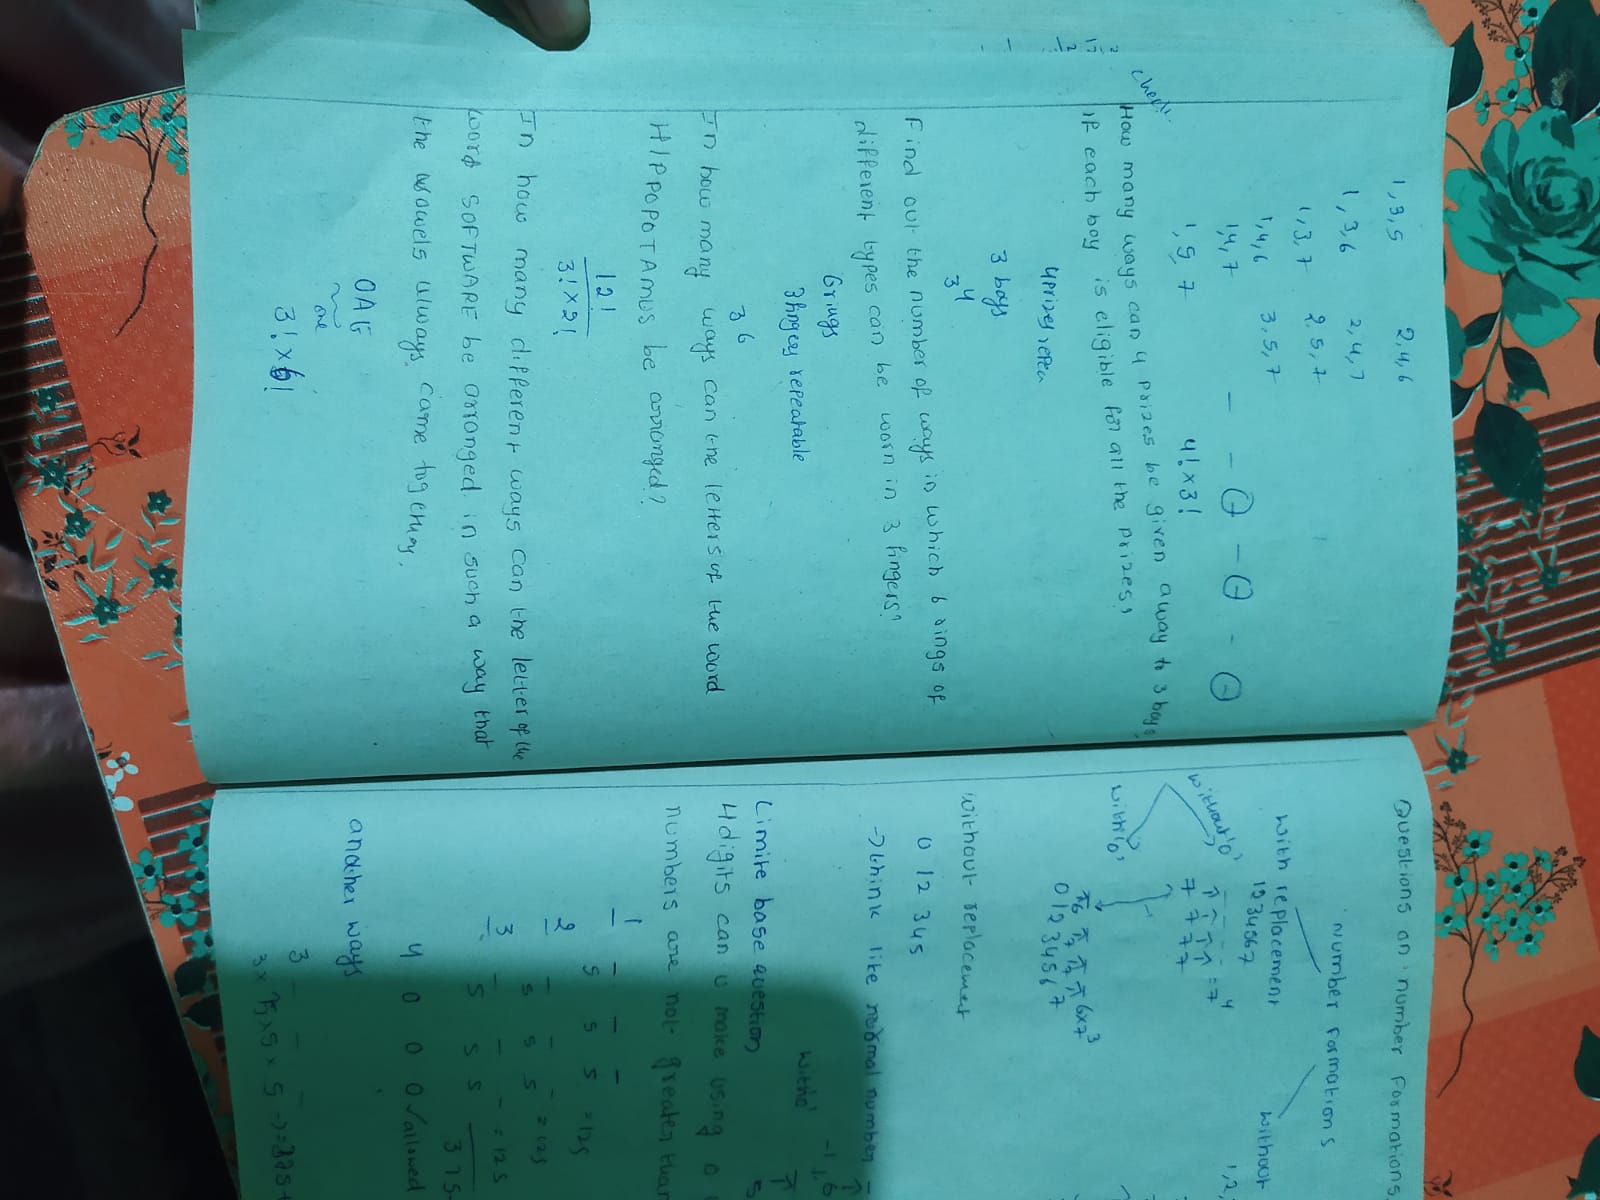 1,3,5 2,4,6
1,3,6 2,4,7
1,3,7 2,5,7
1,4,6 3,5,7
1,4,7 - - 7 - 7 - 7
1,5,7 4! x 3!
check
How many ways can 4 prizes be given away to 3 boys,
if each boy is eligible for all the prizes?
4 prizes repea
3 boys
3^4
Find out the number of ways in which 6 rings of
different types can be worn in 3 fingers?
6 rings
3 finger repeatable
3^6
In how many ways can the letters of the word
HIPPOPOTAMUS be arranged?
12!
3! x 2!
In how many different ways can the letter of the
word SOFTWARE be arranged in such a way that
the vowels always came together.
OAE
one
3! x 6!
Questions on number formations,
number formations
with replacement without
1234567 1,2,
without '0' 7 7 7 7 = 7^4
with '0'
7 7 6x7^3
01234567
without replacement
012345
-> think like normal number
with 0
Limite base question
4 digits can u make using 0
numbers are not greater than
1 - - -
5 5 5 = 125
2 - - -
5 5 5 = 125
3 - - - = 125
5 5 5
375
4 0 0 0 ✓ allowed
another ways
3 - - -
3 x 5 x 5 x 5 -> = 375 +